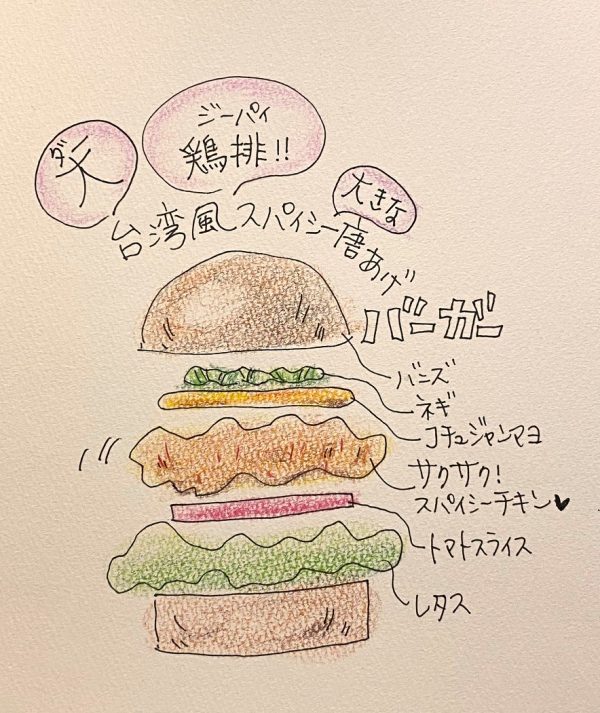 ダー
大
ジーパイ
鶏排!!
大きな
台湾風スパイシー唐あげ
バーガー
バンズ
ネギ
コチュジャンマヨ
サクサク!
スパイシーチキン♥
トマトスライス
レタス